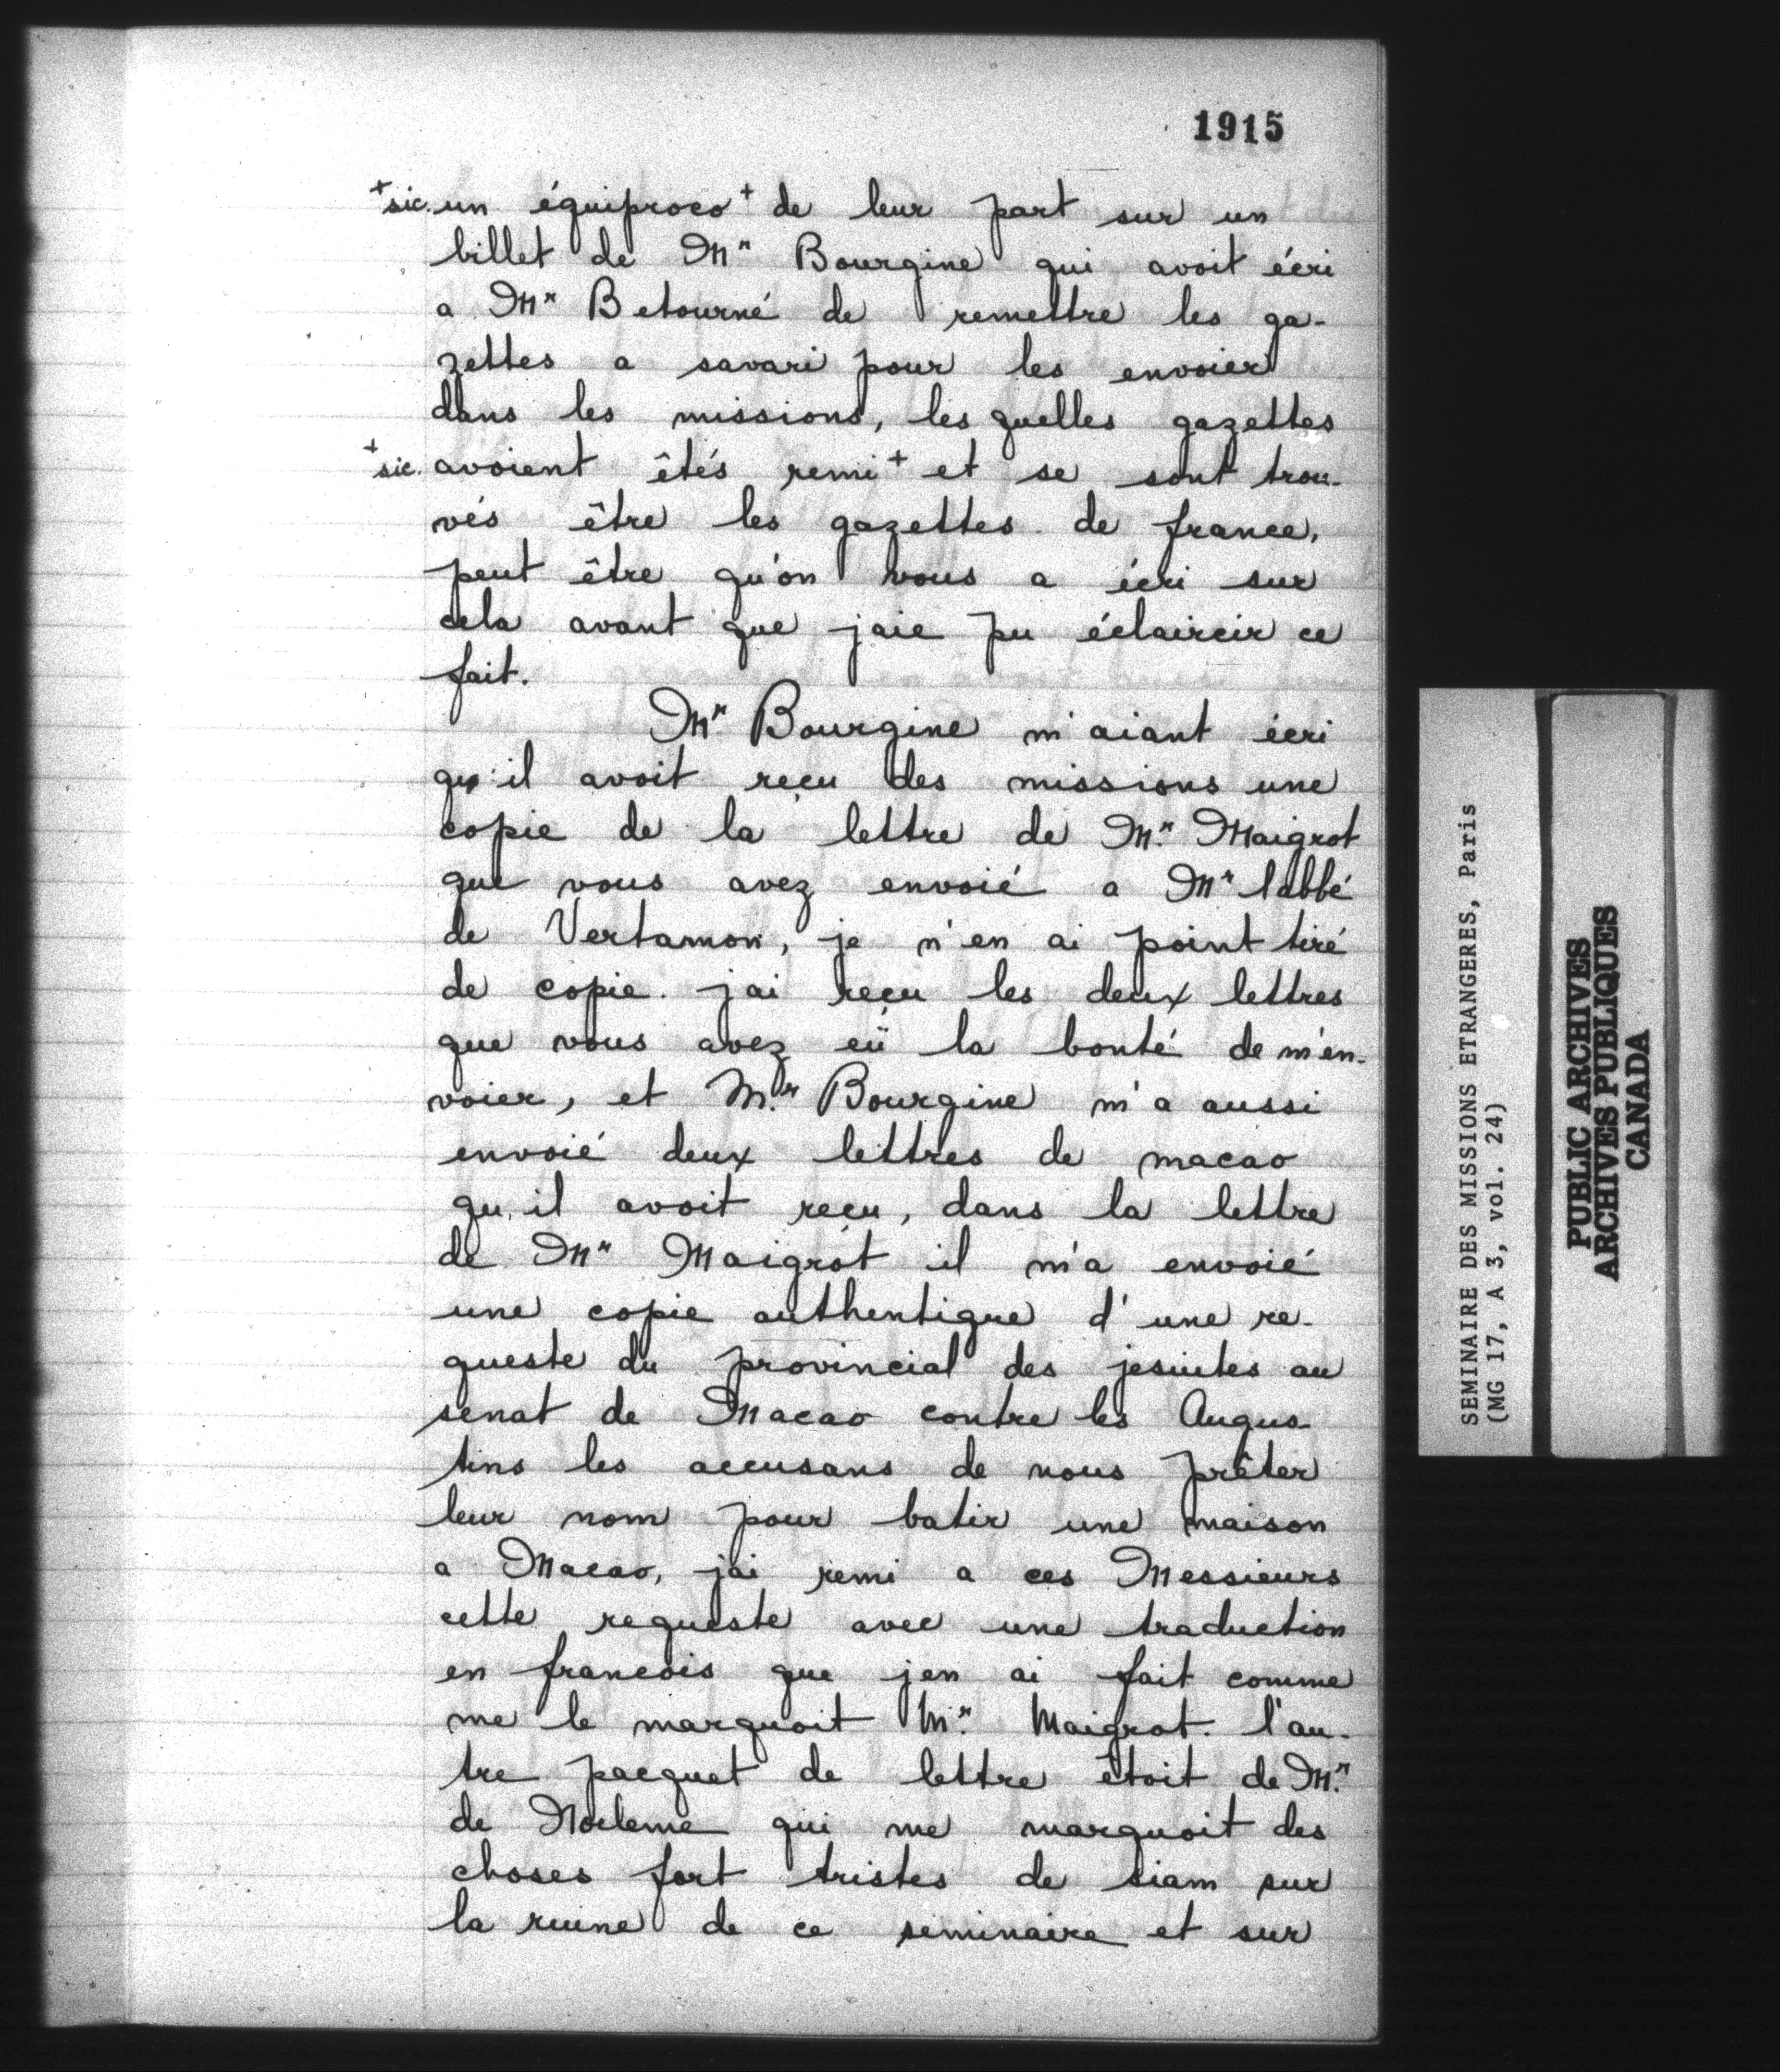 1915
+sic. un équiproco+ de leur part sur un
billet de Mr Bourgine qui avoit écri
a Mr Betourné de remettre les ga-
zettes a savari pour les envoier
dans les missions, les quelles gazettes
+sic. avoient êtés remi+ et se sont trou-
vés être les gazettes de france,
peut être qu'on vous a écri sur
cela avant que jaie pu éclaircir ce
fait.
Mr. Bourgine m'aiant écri
qu'il avoit reçu des missions une
copie de la lettre de Mr. Maigrot
que vous avez envoié a Mr labbé
de Vertamon, je n'en ai point tiré
de copie. jai reçu les deux lettres
que vous avez eü la bonté de m'en-
voier, et Mr. Bourgine m'a aussi
envoié deux lettres de macao
qu'il avoit reçu, dans la lettre
de Mr Maigrot il m'a envoié
une copie authentique d'une re-
queste du provincial des jesuites au
senat de Macao contre les Augus-
tins les accusans de nous prêter
leur nom pour batir une maison
a Macao, jai remi a ces Messieurs
cette requeste avec une traduction
en francois que jen ai fait comme
me le marquoit Mr. Maigrot. l'au-
tre pacquet de lettre êtoit de Mr.
de qui me marquoit des
choses fort tristes de siam sur
la ruine de ce seminaire et sur
SEMINAIRE DES MISSIONS ETRANGERES, Paris
(MG 17, A 3, vol. 24)
PUBLIC ARCHIVES
ARCHIVES PUBLIQUES
CANADA